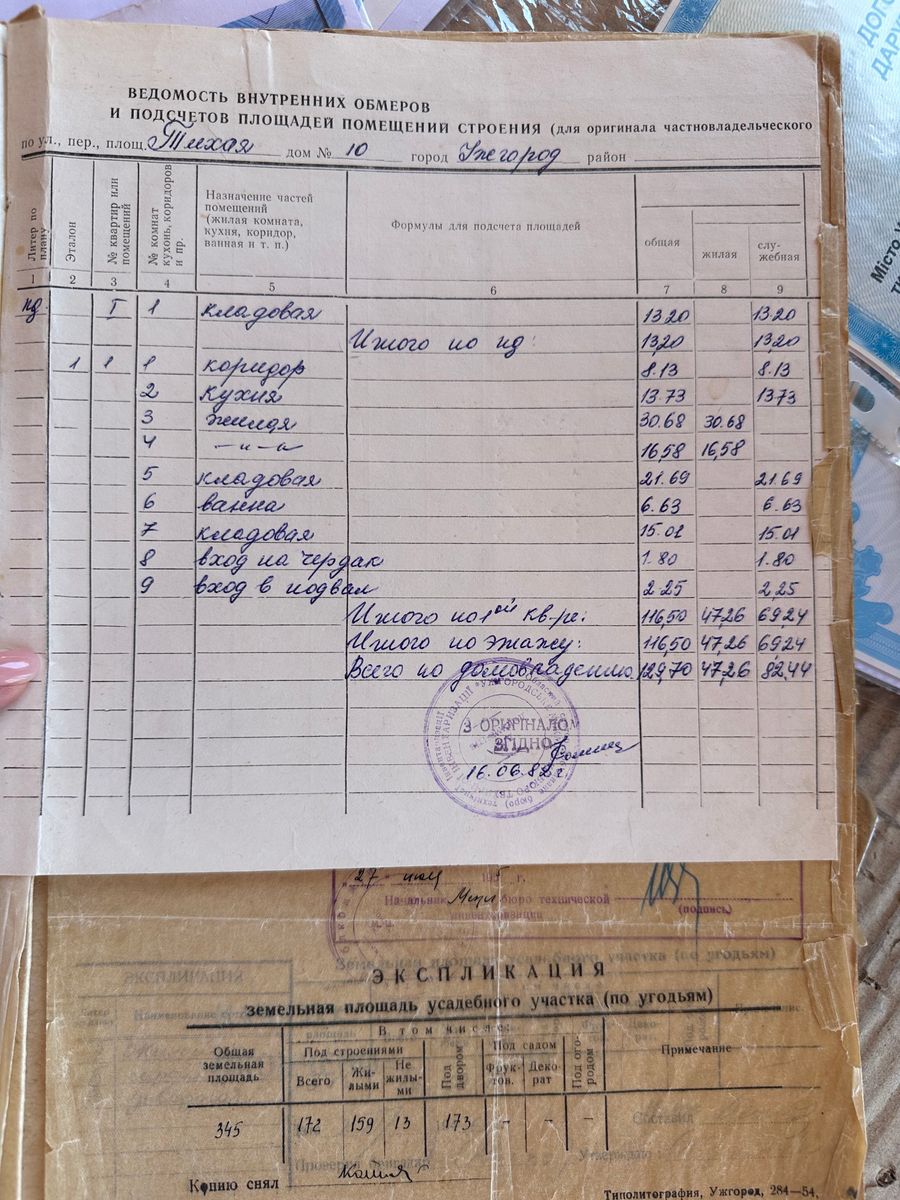 ДОГО
ДАРУ
Місто У
ВЕДОМОСТЬ ВНУТРЕННИХ ОБМЕРОВ
И ПОДСЧЕТОВ ПЛОЩАДЕЙ ПОМЕЩЕНИЙ СТРОЕНИЯ (для оригинала частновладельческого
по ул., пер., площ. Тихая дом № 10 город Ужгород район
Литер по плану Эталон № квартир или помещений № комнат кухонь, коридоров и пр. Назначение частей помещений (жилая комната, кухня, коридор, ванная и т. п.) Формулы для подсчета площадей общая жилая слу-жебная
1 2 3 4 5 6 7 8 9
пд. I 1 кладовая 13.20 13.20
Итого по пд: 13,20 13,20
1 1 1 коридор 8.13 8.13
2 кухня 13.73 13.73
3 жилая 30.68 30.68
4 —и—а 16,58 16,58
5 кладовая 21.69 21.69
6 ванна 6.63 6.63
7 кладовая 15.01 15.01
8 вход на чердак 1.80 1.80
9 вход в подвал 2.25 2,25
Итого по 1ой кв-ре: 116,50 47,26 69,24
Итого по этажу: 116,50 47,26 69,24
Всего по домовладению 129,70 47,26 82,44
З ОРИГІНАЛОМ
ЗГІДНО
16.06.82 г
27 г.
Начальник бюро технической
инвентаризации
(подпись)
ЭКСПЛИКАЦИЯ
земельная площадь усадебного участка (по угодьям)
В том числе:
Общая земельная площадь Под строениями Под двором Под садом Под ого-родом Примечание
Всего Жи-лыми Не жилы-ми Фрук-тов. Деко-рат
345 172 159 13 173 – – –
Копию снял Копия
Типолитография, Ужгород, 284—54.